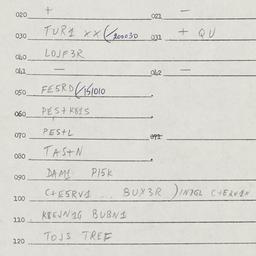 020 + 021 -
030 TUR1 xx (/200030 031 + QU
040 LOJF3R
041 - 042 -
050 FE5RD (/151010
060 PES+K81S
070 PES+L 071
080 TAS+N
090 DAM1 P15K
100 C+E5RV1 .. BUX3R )
110 KREJN1G BUBN1
120 TOJS TREF